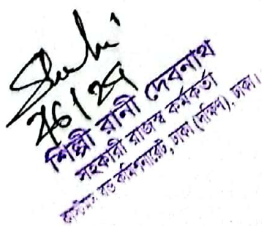 শিল্পী রানী দেবনাথ
সহকারী রাজস্ব কর্মকর্তা
কাস্টমস বন্ড কমিশনারেট, ঢাকা (দক্ষিণ), ঢাকা।